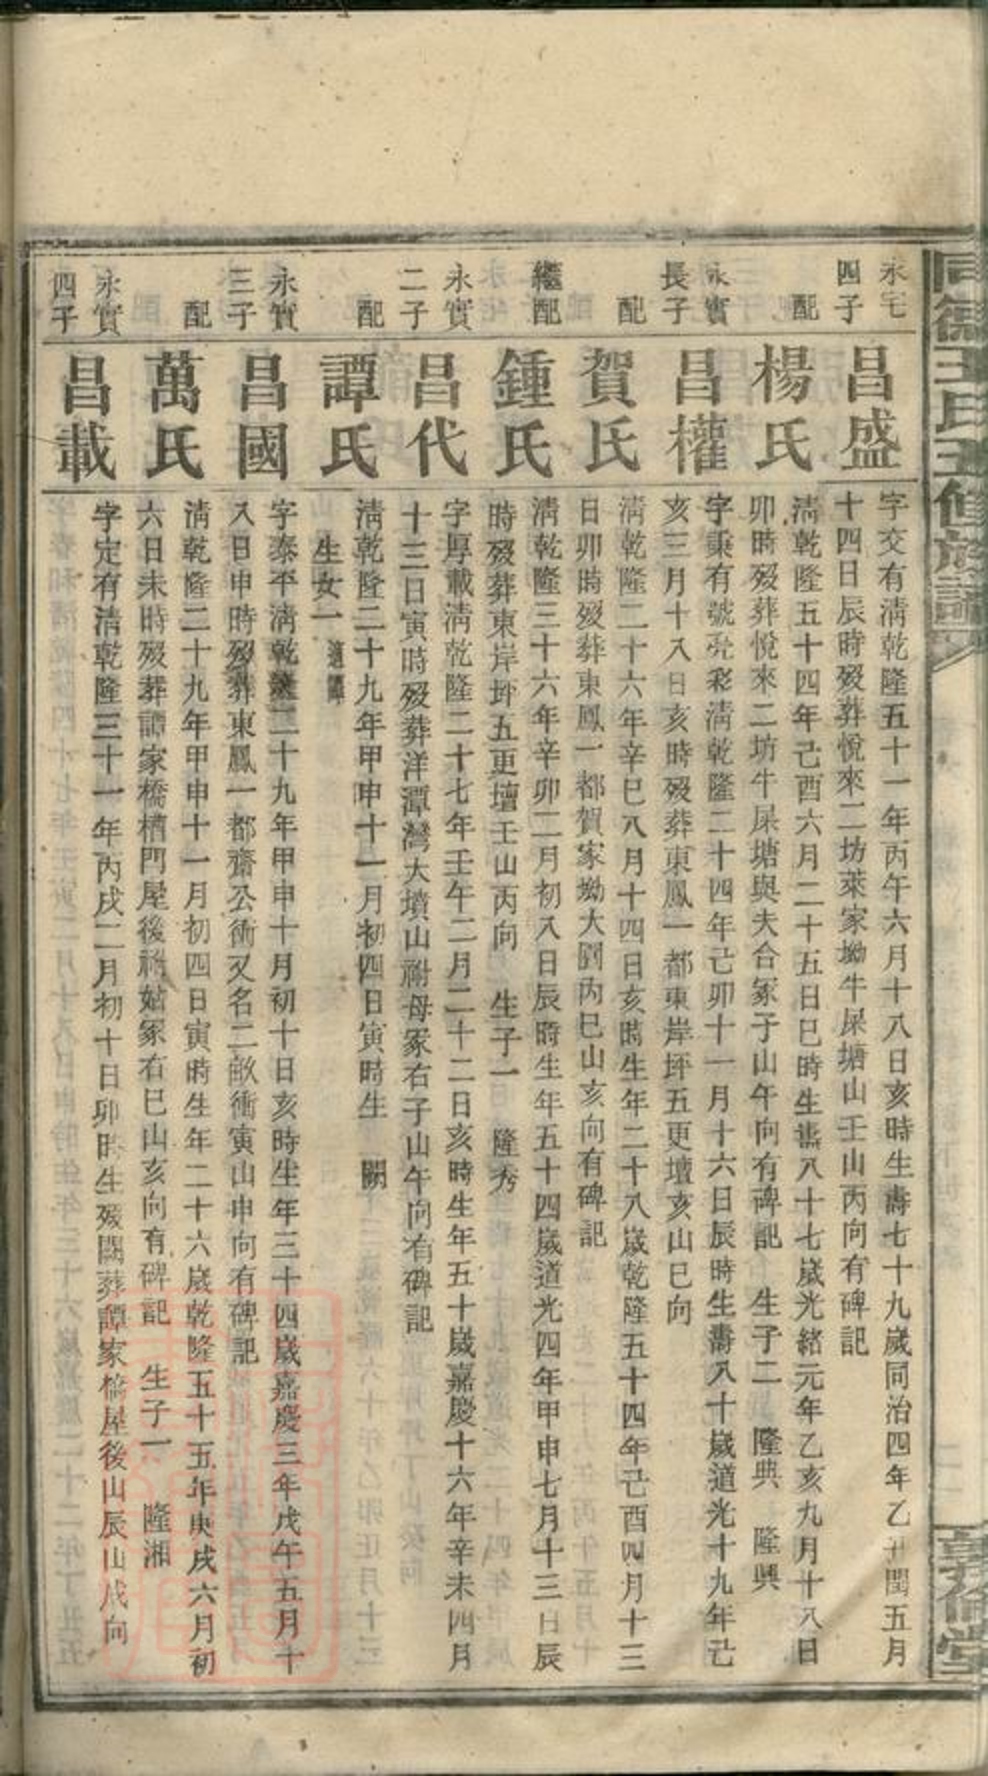 王氏五修族譜
永宅四子
昌盛
字交有清乾隆五十一年丙午六月十八日亥時生壽七十九歲同治四年乙丑閏五月
十四日辰時歿葬悅來二坊萊家坳牛屎塘山壬山丙向有碑記
配
楊氏
清乾隆五十四年己酉六月二十五日巳時生壽八十七歲光緒元年乙亥九月十八日
卯時歿葬悅來二坊牛屎塘與夫合冢子山午向有碑記 生子二 隆典 隆興
永實長子
昌權
字秉有號亮彩清乾隆二十四年己卯十一月十六日辰時生壽八十歲道光十九年己
亥三月十八日亥時歿葬東鳳一都東岸坪五更壇亥山巳向
配
賀氏
清乾隆二十六年辛巳八月十四日亥時生年二十八歲乾隆五十四年己酉四月十三
日卯時歿葬東鳳一都賀家坳大圳丙巳山亥向有碑記
繼配
鍾氏
清乾隆三十六年辛卯二月初八日辰時生年五十四歲道光四年甲申七月十三日辰
時歿葬東岸坪五更壇壬山丙向 生子一 隆秀
永實二子
昌代
字厚載清乾隆二十七年壬午二月二十二日亥時生年五十歲嘉慶十六年辛未四月
十三日寅時歿葬洋潭灣大墳山祔母冢右子山午向有碑記
配
譚氏
清乾隆二十九年甲申十一月初四日寅時生 闕
生女一 適譚
永實三子
昌國
字泰平清乾隆二十九年甲申十月初十日亥時生年三十四歲嘉慶三年戊午五月十
八日申時歿葬東鳳一都齋公衝又名二畝衝寅山申向有碑記
配
萬氏
清乾隆二十九年甲申十一月初四日寅時生年二十六歲乾隆五十五年庚戌六月初
六日未時歿葬譚家橋槽門屋後祔姑冢右巳山亥向有碑記 生子一 隆湘
永實四子
昌載
字定有清乾隆三十一年丙戌二月初十日卯時生歿闕葬譚家橋屋後山辰山戌向